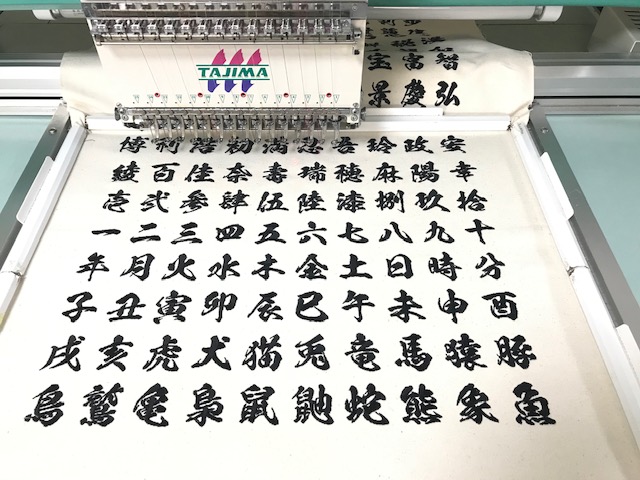 宝 富 智
景 慶 弘
TAJIMA
博 利 浩 満 玲 政 宏
綾 百 佳 奈 寿 瑞 穂 麻 陽 幸
壱 弐 参 肆 伍 陸 漆 捌 玖 拾
一 二 三 四 五 六 七 八 九 十
年 月 火 水 木 金 土 日 時 分
子 丑 寅 卯 辰 巳 午 未 申 酉
戌 亥 虎 犬 猫 兎 竜 馬 猿 豚
鳥 鷲 亀 梟 鼠 鼬 蛇 熊 象 魚